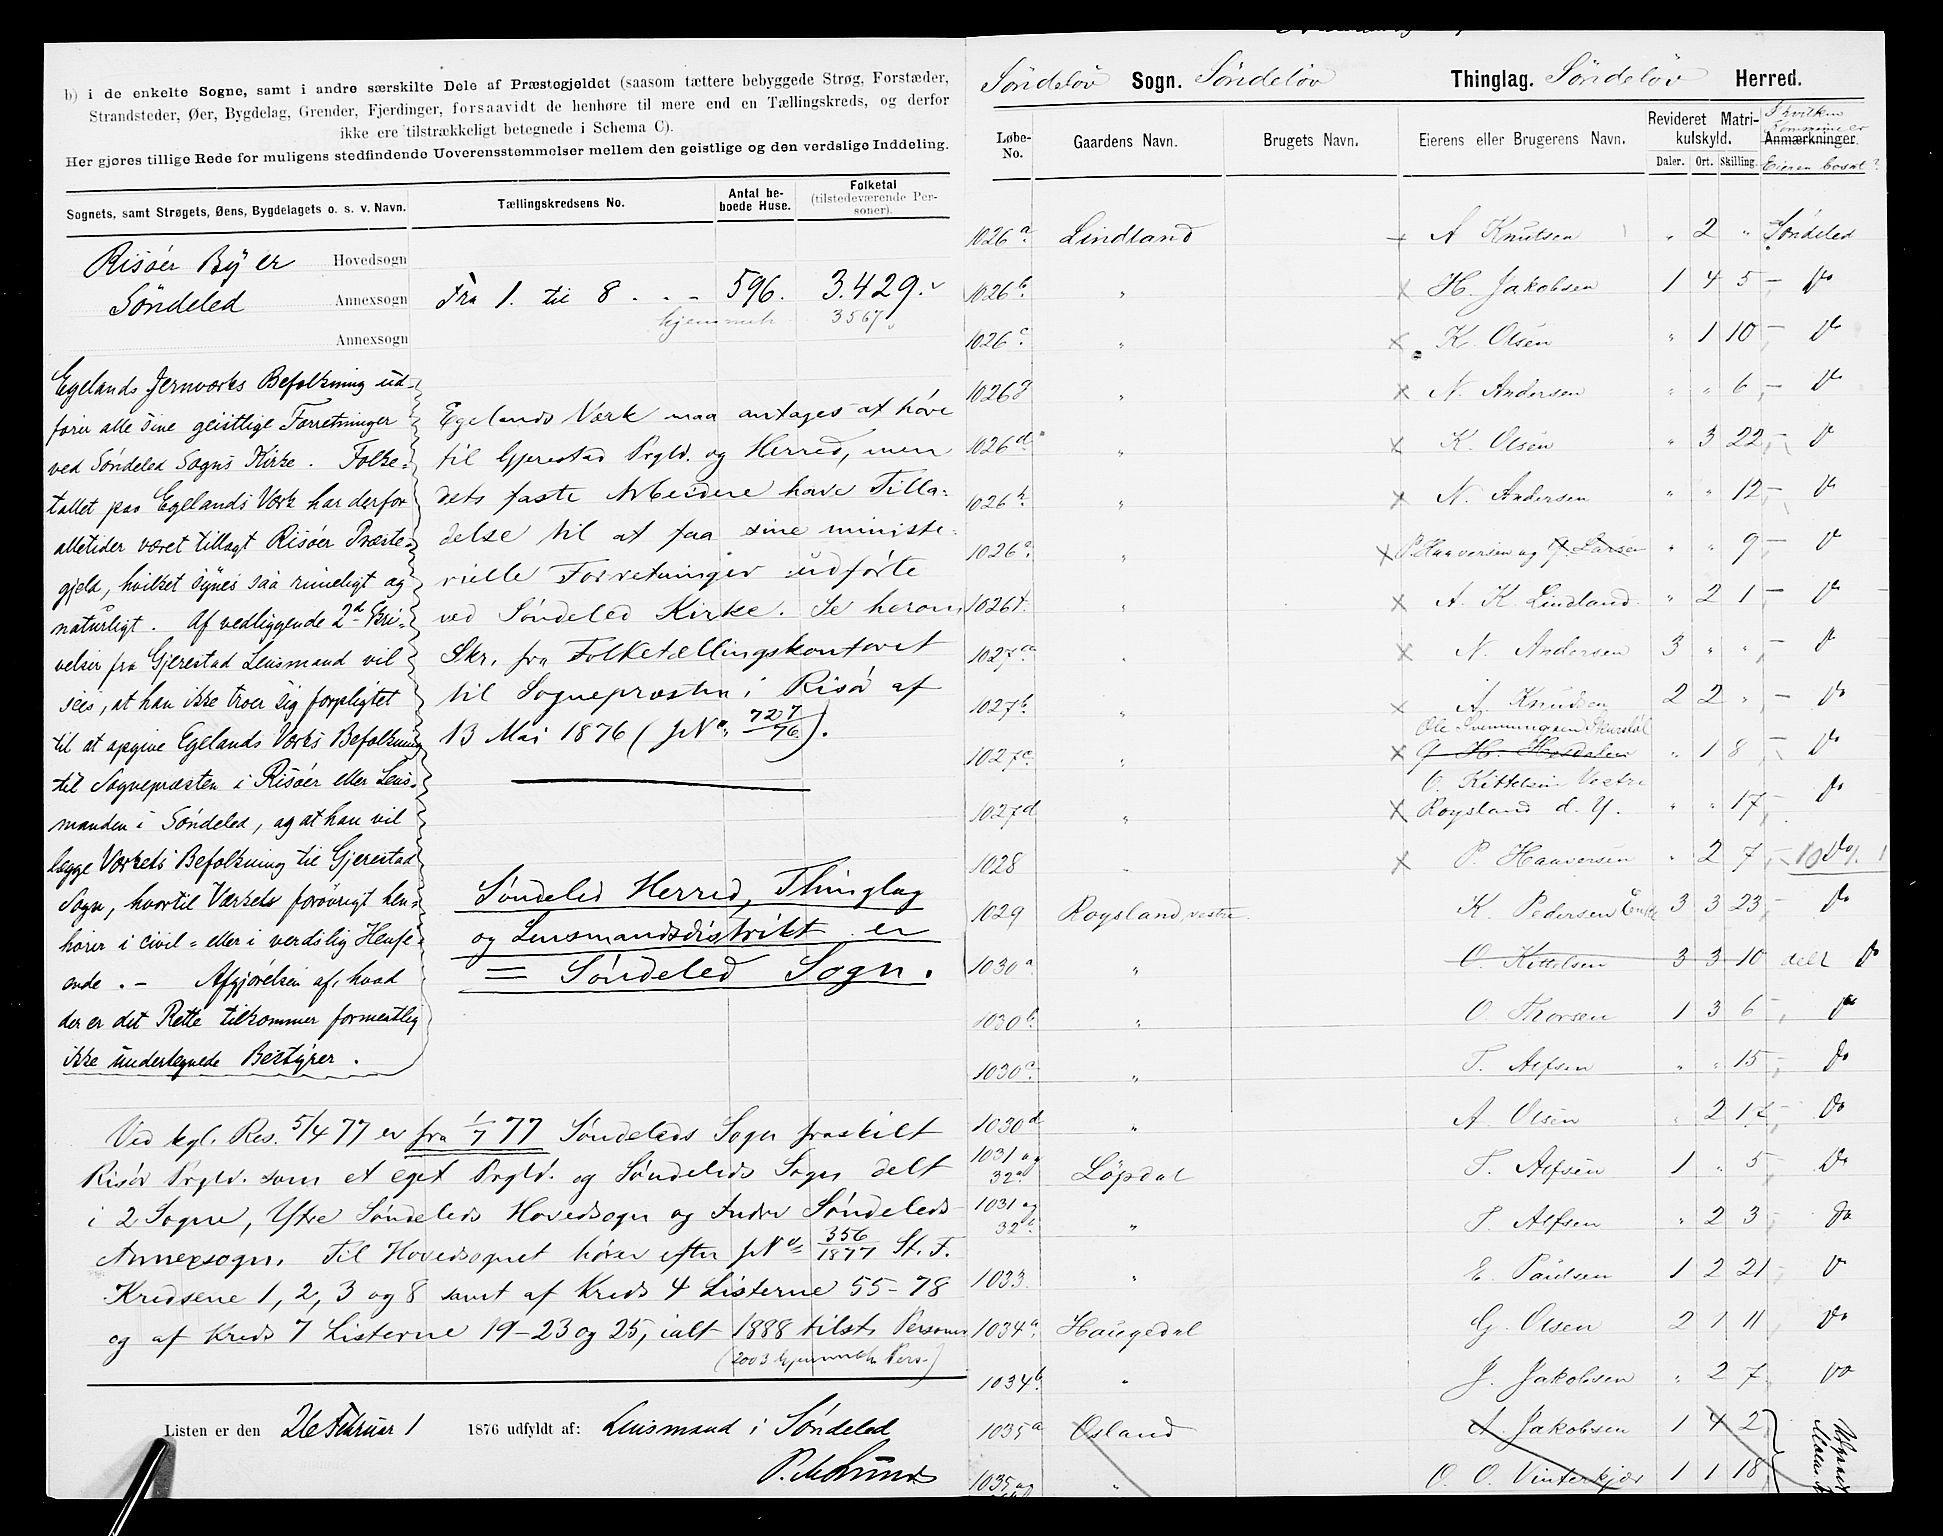 b) i de enkelte Sogne, samt i andre særskilte Dele af Præstegjeldet (saasom tættere bebyggede Strøg, Forstæder,
Strandsteder, Øer, Bygdelag, Grender, Fjerdinger, forsaavidt de henhøre til mere end en Tællingskreds, og derfor
ikke ere tilstrækkeligt betegnede i Schema C).
Her gjøres tillige Rede for muligens stedfindende Uoverensstemmelser mellem den geistlige og den verdslige Inddeling.
Sognets, samt Strøgets, Øens, Bygdelagets o. s. v. Navn. Tællingskredsens No. Antal beboede Huse. Folketal (tilstedeværende Personer).
Risöer By er Hovedsogn
Söndeled Annexsogn Fra 1. til 8 . . - 596. 3.429.
hjemmeh 3567
Annexsogn
Egelands Jernværks Befolkning ud-
förer alle sine geistlige Forretninger
ved Söndeled Sogns Kirke. Folke-
tallet paa Egelands Værk har derfor
alletider været tillagt Risöer Præste-
gjeld, hvilket synes saa rimeligt og
naturligt. Af vedliggende 2d Skri-
velser fra Gjerestad Lensmand vil
sees, at han ikke troer sig forpligtet
til at opgive Egelands Værks Befolkning
til Sognepræsten i Risöer eller Lens-
manden i Söndeled, og at han vil
lægge Værkets Befolkning til Gjerestad
Sogn, hvortil Værkets forövrigt hen-
hörer i civil- eller i verdslig Hense-
ende. - Afgjörelsen af, hvad
der er det Rette tilkommer formentlig
ikke undertegnede Bestyrer.
Egelands Værk maa antages at höre
til Gjerestad Prgld. og Herred, men
dets faste Arbeidere have Tilla-
delse til at faa sine ministe-
rielle Forretninger udförte
ved Söndeled Kirke. Se herom
Skr. fra Folketællingskontoret
til Sognepræsten i Risör af
13 Mai 1876 (JNo. 727/76).
Söndeled Herred, Thinglag
og Lensmandsdistrikt er
= Söndeled Sogn.
Ved kgl. Res. 5/4 77 er fra 1/7 77 Söndeleds Sogn fraskilt
Risör Prgld. som et eget Prgld. og Söndeleds Sogn delt
i 2 Sogne, Ytre Söndeleds Hovedsogn og Indre Söndeleds
Annexsogn. Til Hovedsognet hörer efter JNo 356/1877 St. F.
Kredsene 1, 2, 3 og 8 samt af Kreds 4 Listerne 55-78
og af Kreds 7 Listerne 19-23 og 25, ialt 1888 tilst. Personer
(2003 hjemmeh. Pers.)
Listen er den 26 Februar 1876 udfyldt af: Lensmand i Söndeled
P. M. Lund
Söndelöv Sogn. Söndelöv Thinglag. Söndelöv Herred.
Løbe-No. Gaardens Navn. Brugets Navn. Eierens eller Brugerens Navn. Revideret Matrikulskyld. Daler. Ort. Skilling. Anmærkninger. I hvilken Kommune er Eieren bosat?
1026a. Lindland A Knutsen " 2 " Söndeled
1026b. " H. Jakobsen 1 4 5 - Do
1026c. " K. Olsen " 1 10 - Do
1026 " N. Andersen " " 6 - Do
1026d. " K. Olsen " 3 22 - Do
1026 " N. Andersen " " 12 - Do
1026 " P. Haaversen og Larsen " " 9 - Do
1026 " A. K. Lindland. " 2 1 - Do
1027a " N. Andersen 3 " " - Do
1027b. " A. Knudsen 2 2 " - Do
1027c. " Ole Svenningsen H. " 1 8 - Do
1027d " O. Kittelsen Vestre Roysland d. y. " " 17 - Do
1028 " P. Haaversen " 2 7 - Do
1029 Roysland vestre. K. Pedersen Enke 3 3 23 - Do
1030a. " O. Kittelsen 3 3 10 delt Do
1030b. " O. Thorsen 1 3 6 - Do
1030c. " T. Alfsen " " 15 - Do
1030d " A. Olsen " 2 - Do
1031 og 32a. Löpdal T. Alfsen 1 " 5 - Do
1031 og 32b. " T. Alfsen " 2 3 - Do
1033 " E. Paulsen 1 2 21 - Do
1034a. Haugedal G. Olsen 2 1 11 Do
1034b. " J. Jakobsen " 2 7 Do
1035a Osland A Jakobsen 1 4 2
1035 og " O. O. Vinterkjær 1 1 18